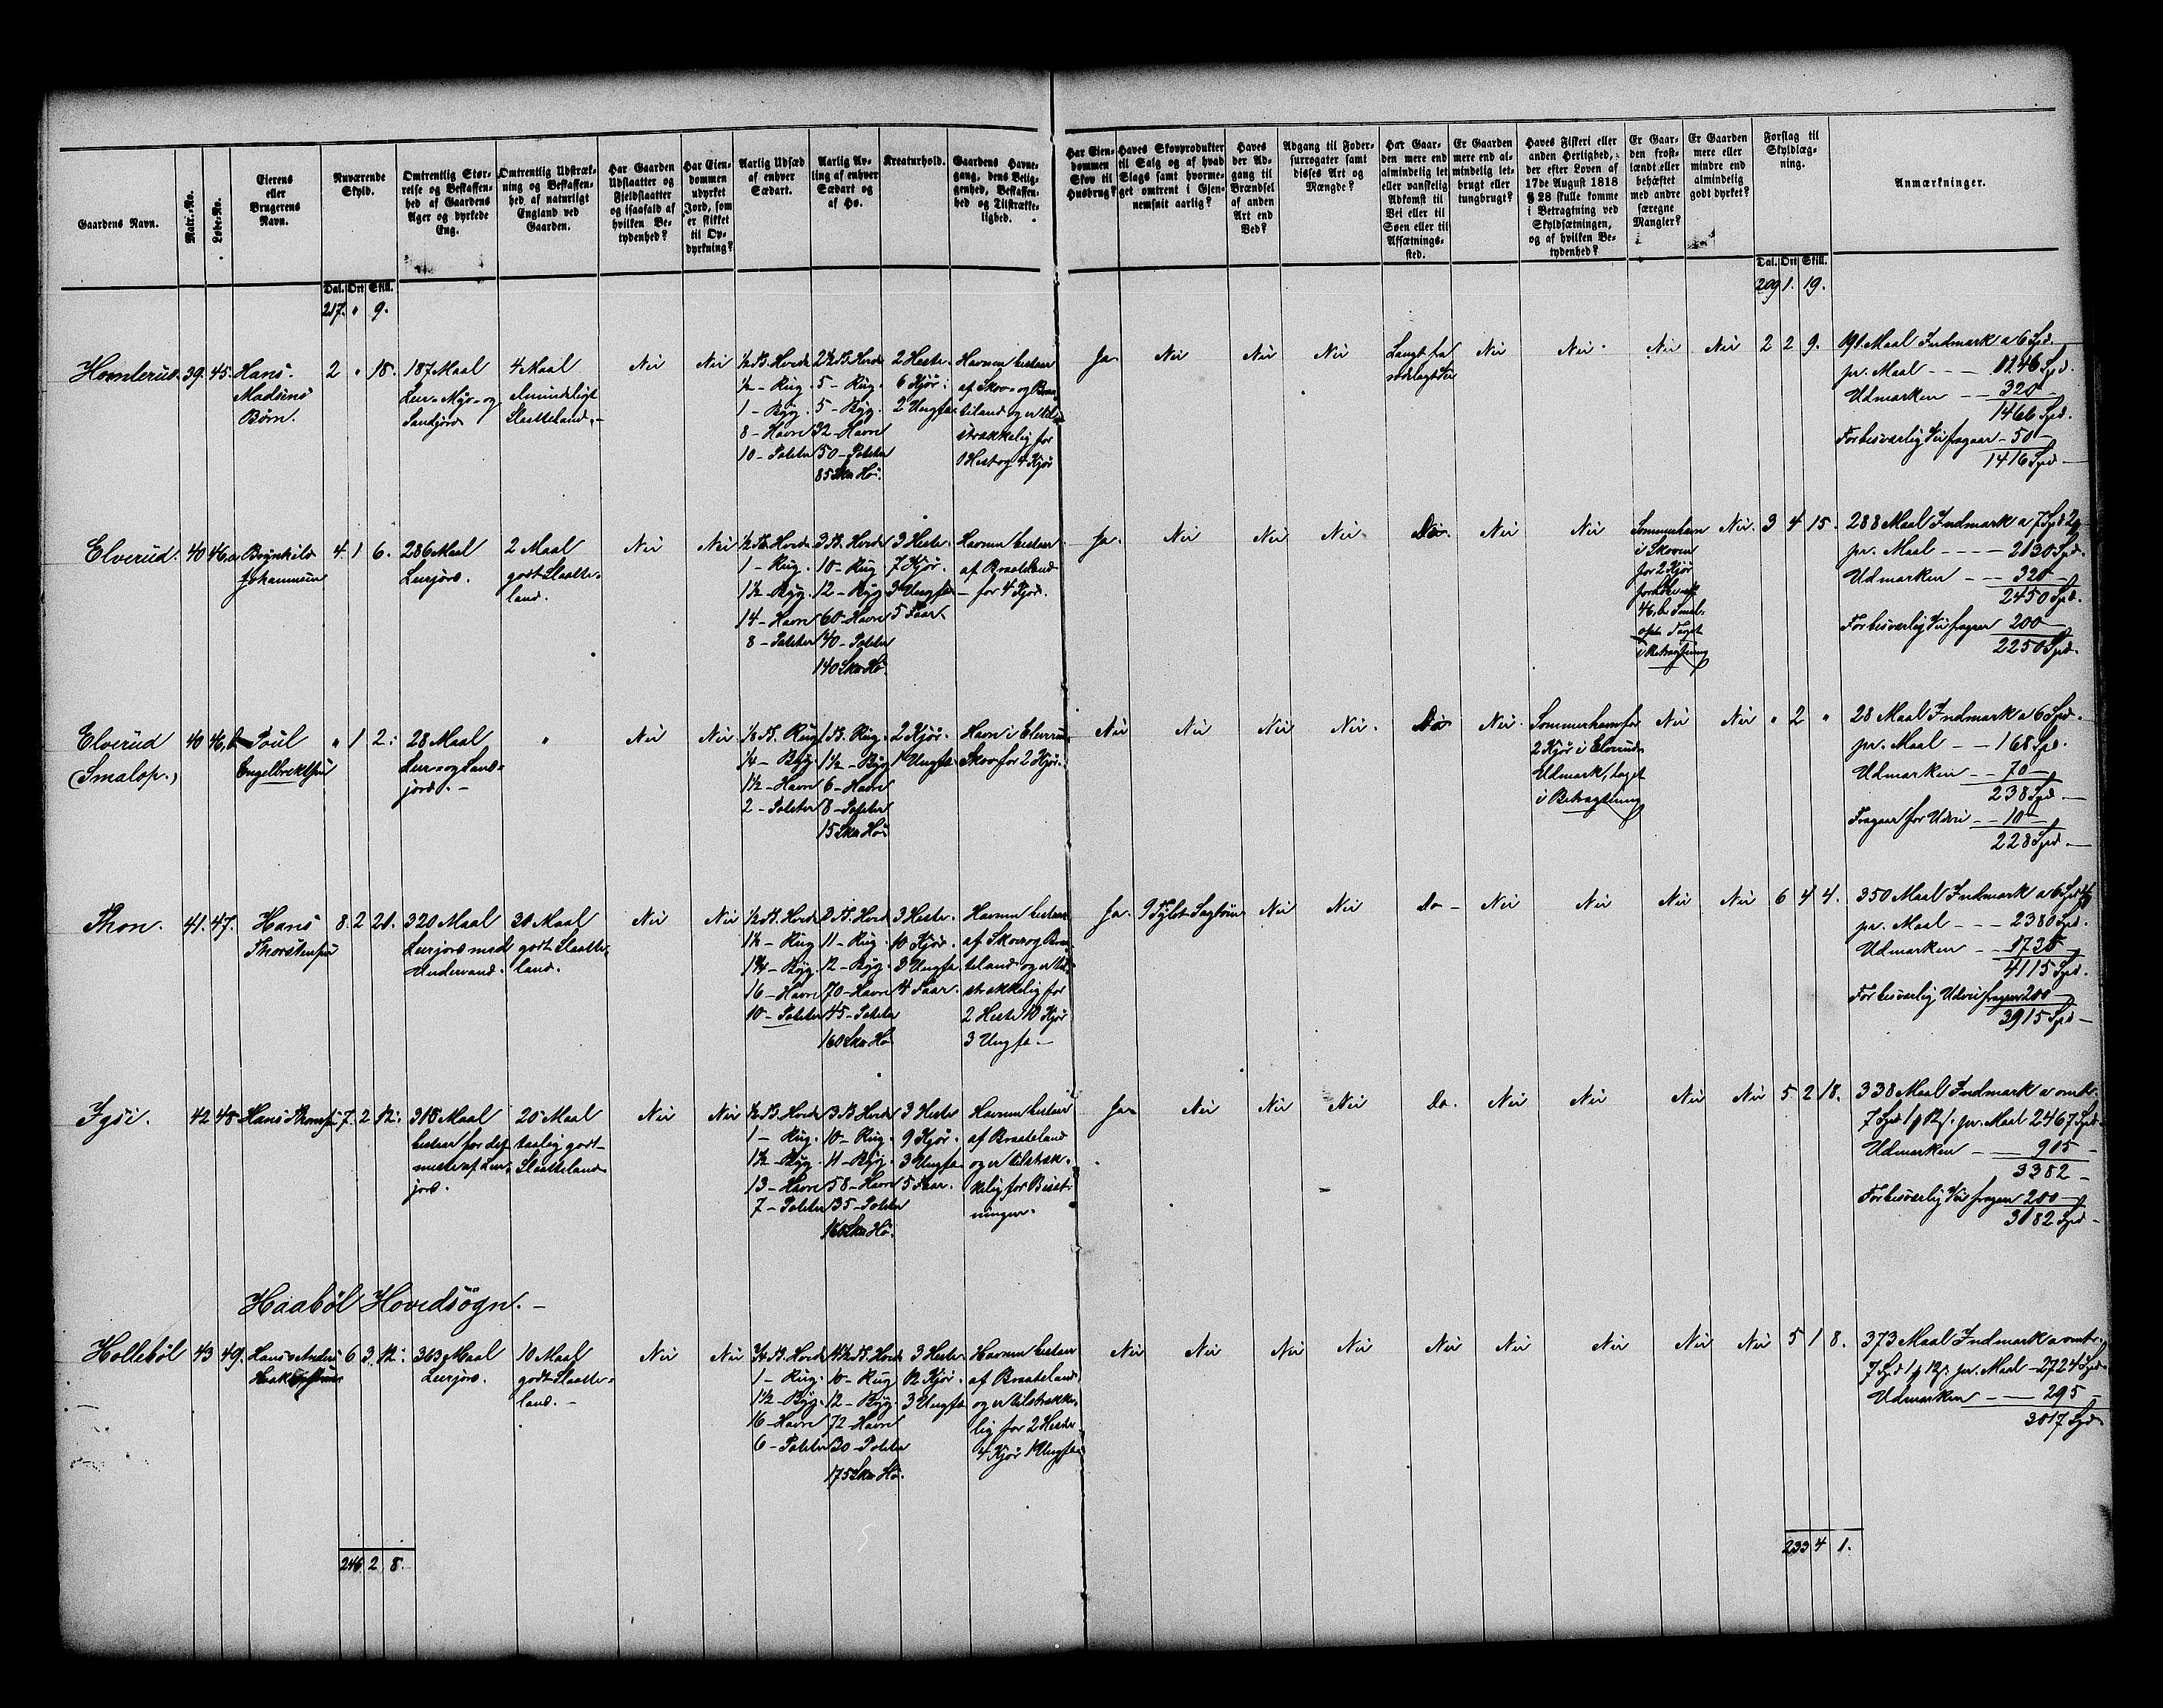 Gaardens Navn.
Matr.-No.
Løbe-No.
Eierens eller Brugerens Navn.
Nuværende Skyld.
Omtrentlig Størrelse og Beskaffenhed af Gaardens Ager og dyrkede Eng.
Omtrentlig Udstrækning og Beskaffenhed af naturligt England ved Gaarden.
Har Gaarden Udslaatter og Fjeldslaatter og isaafald af hvilken Betydenhed?
Har Eiendommen udyrket Jord, som er skikket til Opdyrkning?
Aarlig Udsæd af enhver Sædart.
Aarlig Avling af enhver Sædart og af Hø.
Kreaturhold.
Gaardens Havnegang, dens Beliggenhed, Beskaffenhed og Tilstrækkelighed.
Har Eiendommen Skov til Husbrug?
Haves Skovprodukter til Salg og af hvad Slags samt hvormeget omtrent i Gjennemsnit aarlig?
Haves der Adgang til Brændsel af anden Art end Ved?
Adgang til Fodersurrogater samt disses Art og Mængde?
Har Gaarden mere end almindelig let eller vanskelig Adkomst til Vei eller til Søen eller til Afsætningssted.
Er Gaarden mere end almindelig letbrugt eller tungbrugt?
Haves Fiskeri eller anden Herlighed, der efter Loven af 17de August 1818 § 28 skulle komme i Betragtning ved Skyldsætningen, og af hvilken Betydenhed?
Er Gaarden frostlændt eller behæftet med andre særegne Mangler?
Er Gaarden mere eller mindre end almindelig godt dyrket?
Forslag til Skyldlægning.
Anmærkninger.
Dal. Ort Skill.
217. " 9.
Dal. Ort Skill.
209 1. 19.
Homlerud. 39. 45. Hans Madsens Børn. 2 " 18.
187 Maal Leer- Myr- og Sandjord
4 Maal almindeligt Slaatteland.
Nei Nei
1/2 T. Hvede
1/2 - Rug.
1 - Byg.
8 - Havre
10 - Poteter
2 1/2 T. Hvede
5 - Rug.
5 - Byg.
32 - Havre
50 - Poteter
85 Sku Hø.
2 Heste
6 Kjør.
2 Ungfæ
Havnen bestaar af Skov- og Braateland og er tilstrækkelig for 1 Hest og 4 Kjør
Ja. Nei Nei Nei
Langt fra
Nei Nei Nei Nei 2 2 9.
191 Maal Indmark a 6 Spd.
pr. Maal - - - 1146 Spd.
Udmarken - - 320
1466 Spd.
For besværlig Vei fragaar - 50 -
1416 Spd.
Elverud. 40 46.a Brynhild Johannesen 4. 1 6.
286 Maal Leerjord.
2 Maal godt Slaatteland.
Nei Nei
1/2 T. Hvede
1 - Rug.
1 1/2 - Byg.
14 - Havre
8 - Poteter
3 T. Hvede
10 - Rug
12 - Byg
60 - Havre
40 - Poteter
140 Sku Hø.
3 Heste.
7 Kjør.
3 Ungfæ
5 Faar
Havnen bestaar af Braateland - for 4 Kjør.
Ja. Nei Nei Nei. Do. Nei Nei
Sommerhavn i Skoven for 2 Kjør
46, b. Smal. op. Taget i Betragtning
Nei. 3 4 15.
288 Maal Indmark a 7 Spd 2
pr. Maal - - - 2130 Spd.
Udmarken - - 320 -
2450 Spd.
For besværlig Vei fragaar 200 -
2250 Spd.
Elverud (Smalop.) 40 46,b Poul Engelbrektsen " 1 2.
28 Maal Leer- og Sandjord. -
"
Nei Nei
1/6 T. Rug
1/4 - Byg.
1 1/2 - Havre
2 - Poteter
1 T. Rug.
1 1/2 - Byg
6 - Havre
8 - Poteter
15 Sku Hø
2 Kjør.
1 Ungfæ
Havn i Elverud Skov for 2 Kjør.
Nei Nei Nei Nei. Do. Nei.
Sommerhavn for 2 Kjør i Elveruds Udmark, taget i Betragtning
Nei Nei " 2 "
28 Maal Indmark a 6 Spd.
pr. Maal - - 168 Spd.
Udmarken - - 70 -
238 Spd. -
Fragaar for Udvei - - 10 -
228 Spd. -
Thon. 41. 47. Hans Thorstensen 8. 2 21.
320 Maal Leerjord med Undervand.
30 Maal godt Slaatteland.
Nei Nei
1/2 T. Hvede
1 1/2 - Rug
1 3/4 - Byg.
16 - Havre
10 - Poteter
2 T. Hvede
11 - Rug.
12 - Byg.
70 - Havre
45 - Poteter
160 Sku Hø
3 Heste.
10 Kjør.
3 Ungfæ
4 Faar.
Havnen bestaar af Skov og Braateland og er tilstrækkelig for 2 Heste 10 Kjør 3 Ungfæ -
Ja. 9 Tylvt Sagtømmer Nei Nei Do - Nei Nei Nei Nei 6 4 4.
350 Maal Indmark a 6 Spd 4
pr. Maal - - - 2380 Spd.
Udmarken - - 1735 -
4115 Spd.
For besværlig Udvei fragaar 200 -
3915 Spd -
Igsi. 42 48 Hans Thomsen 7. 2 12.
318 Maal bestaar for det meste af Leerjord.
20 Maal taalig godt Slaatteland
Nei Nei
1/2 T. Hvede
1 - Rug.
1 1/2 - Byg.
13 - Havre
7 - Poteter
3 T. Hvede
10 - Rug.
11 - Byg.
58 - Havre
35 - Poteter
160 Sku Hø.
3 Heste
9 Kjør.
3 Ungfæ
5 Faar.
Havnen bestaar af Braateland og er tilstrækkelig for Besætningen.
Ja. Nei Nei Nei Do. Nei Nei Nei Nei 5 2 18.
338 Maal Indmark a omtr.
7 Spd 1 12 s. pr. Maal 2467 Spd.
Udmarken - - 915 -
3382 -
For besværlig Vei fragaar 200 -
3182 Spd -
Haabøl Hovedsogn. -
Hollebøl 43 49. Hans Anders 6 3 12.
363 Maal Leerjord.
10 Maal godt Slaatteland. -
Nei Nei
3/4 T. Hvede
1 - Rug.
1 1/2 - Byg.
16 - Havre
6 - Poteter
4 1/2 T. Hvede
10 - Rug
12 - Byg.
72 - Havre
30 - Poteter
175 Sku Hø.
3 Heste
12 Kjør.
3 Ungfæ
Havnen bestaar af Braateland og er tilstrækkelig for 2 Heste 4 Kjør 1 Ungfæ
Nei Nei Nei Nei Nei Nei Nei Nei Nei 5 1 8.
373 Maal Indmark a omtr.
7 Spd 1 12 s. pr. Maal - 2724 Spd
Udmarken - - 295 -
3017 Spd
246 2 8.
233 4 1.